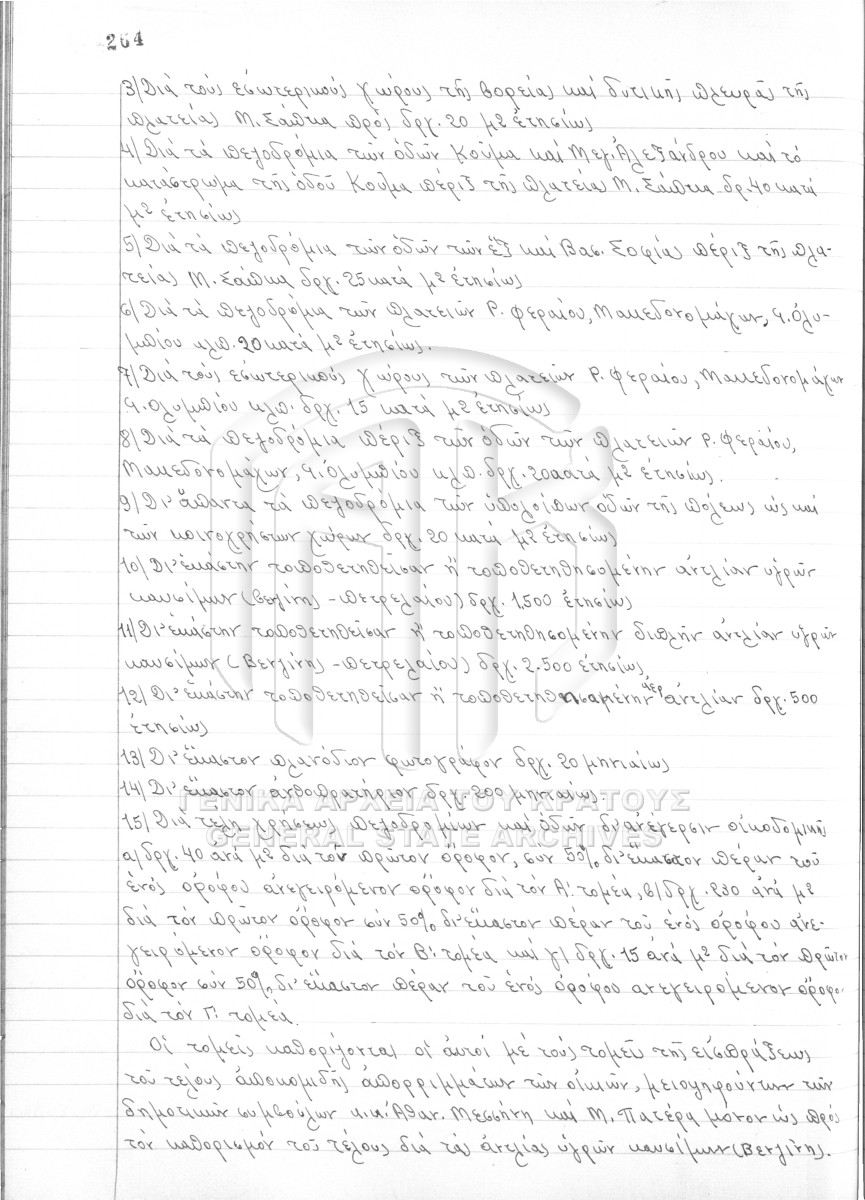 264
3/ Διά τούς εσωτερικούς χώρους τῆς βορείας καί δυτικῆς πλευρᾶς τῆς
πλατείας Μ. Σάπκα πρός δρχ. 20 μ2 ἐτησίως
4/ Διά τά πεζοδρόμια τῶν ὁδῶν Κούμα καί Μεγ. Ἀλεξάνδρου καί τό
κατάστρωμα τῆς ὁδοῦ Κούμα πέριξ τῆς πλατείας Μ. Σάπκα δρ. 40 κατά
μ2 ἐτησίως
5/ Διά τά πεζοδρόμια τῶν ὁδῶν τῶν ἕξ καί Βασ. Σοφίας πέριξ τῆς πλα-
τείας Μ. Σάπκα δρχ. 25 κατά μ2 ἐτησίως
6/ Διά τά πεζοδρόμια τῶν πλατειῶν Ρ. Φεραίου, Μακεδονομάχων, Γ. Ὀλυ-
μπίου κλπ. 20 κατά μ2 ἐτησίως.
7/ Διά τούς εσωτερικούς χώρους τῶν πλατειῶν Ρ. Φεραίου, Μακεδονομάχων
Γ. Ολυμπίου κλπ. δρχ. 15 κατά μ2 ἐτησίως
8/ Διά τά πεζοδρόμια πέριξ τῶν ὁδῶν τῶν πλατειῶν Ρ. Φεραίου,
Μακεδονομάχων, Γ. Ὀλυμπίου κλπ. δρχ. 20 κατά μ2 ἐτησίως.
9/ Δι' ἅπαντα τά πεζοδρόμια τῶν ὑπολοίπων ὁδῶν τῆς πόλεως ὡς καί
τῶν κοινοχρήστων χώρων δρχ. 20 κατά μ2 ἐτησίως
10/ Δι' ἑκάστην τοποθετηθεῖσαν ἤ τοποθετηθησομένην ἀντλίαν ὑγρῶν
καυσίμων (Βενζίνης - πετρελαίου) δρχ. 1,500 ἐτησίως
11/ Δι' ἑκάστην τοποθετηθεῖσαν ἤ τοποθετηθησομένην διπλῆν ἀντλίαν ὑγρῶν
καυσίμων (Βενζίνης - πετρελαίου) δρχ. 2.500 ἐτησίως
12/ Δι' ἑκάστην τοποθετηθεῖσαν ἤ τοποθετηθησαμένην ἀερ ἀντλίαν δρχ. 500
ἐτησίως
13/ Δι' ἕκαστον πλανόδιον φωτογράφον δρχ. 20 μηνιαίως
14/ Δι' ἕκαστον ἀνθοπρατήριον δρχ. 200 μηνιαίως
ΓΕΝΙΚΑ ΑΡΧΕΙΑ ΤΟΥ ΚΡΑΤΟΥΣ
15/ Διά τέλη χρήσεως πεζοδρομίων καί ὁδῶν δι' ἀνέγερσιν οἰκοδομῆς
GENERAL STATE ARCHIVES
α) δρχ. 40 ἀνά μ2 διά τον πρῶτον ὄροφον, συν 50% δι' ἕκαστον πέραν τοῦ
ἑνός ὀρόφου ἀνεγειρόμενον ὄροφον διά τόν Α΄. τομέα, β) δρχ. 230 ἀνά μ2
διά τόν πρῶτον ὄροφον σύν 50% δι' ἕκαστον πέραν τοῦ ἑνός ὀρόφου ἀνε-
γειρόμενον ὄροφον διά τόν Β΄. τομέα καί γ) δρχ. 15 ἀνά μ2 διά τόν πρῶτον
ὄροφον σύν 50% δι' ἕκαστον πέραν τοῦ ἑνός ὀρόφου ανεγειρόμενον ὄροφο.
διά τόν Γ΄ τομέα.
Οἱ τομεῖς καθορίζονται οἱ αὐτοί μέ τούς τομεῖς τῆς εἰσπράξεως
τοῦ τέλους ἀποκομιδῆς ἀπορριμμάτων τῶν οἰκιῶν, μειοψηφούντων τῶν
δημοτικῶν συμβούλων κ.κ. Ἀθαν. Μεσσήνη καί Μ. Πατέρα μόνον ὡς πρός
τόν καθορισμόν τοῦ τέλους διά τάς ἀντλίας ὑγρῶν καυσίμων (Βενζίνης.